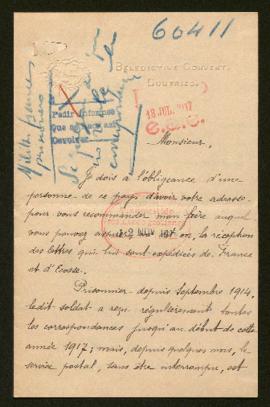 60411
BÉNÉDICTINE CONVENT,
DUMFRIES.
Pedir informes
Devolver
18 JUL. 1917
Monsieur,
Je dois à l'obligeance d'une
personne de ce pays d'avoir votre adresse
pour vous recommander mon frère auquel
vous pouvez assurer, dit-on, la réception
des lettres qui lui sont expédiées de France
et d'Ecosse.
Prisonnier depuis Septembre 1914,
ledit soldat a reçu régulièrement toutes
les correspondances jusqu'au début de cette
année 1917; mais, depuis quelques mois, le
service postal, sans être interrompu, est